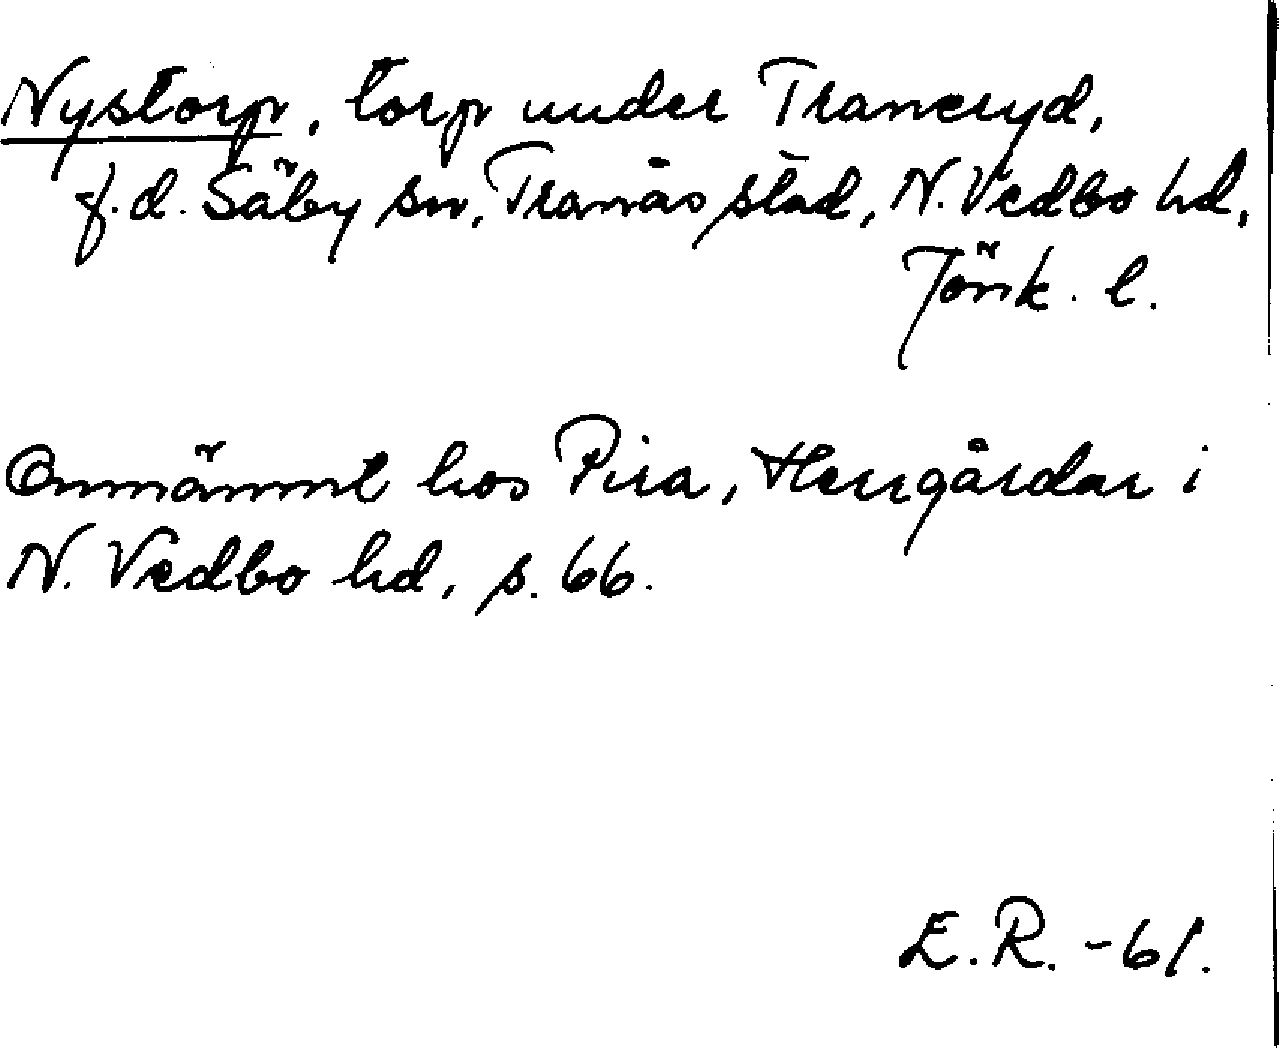 Nystorp, torp under Traneryd,
f.d. Säby sn, Tranås stad, N. Vedbo hd,
Jönk. l.
Omnämnt hos Pira, Herrgårdar i
N. Vedbo hd, s. 66.
E.R. -61.